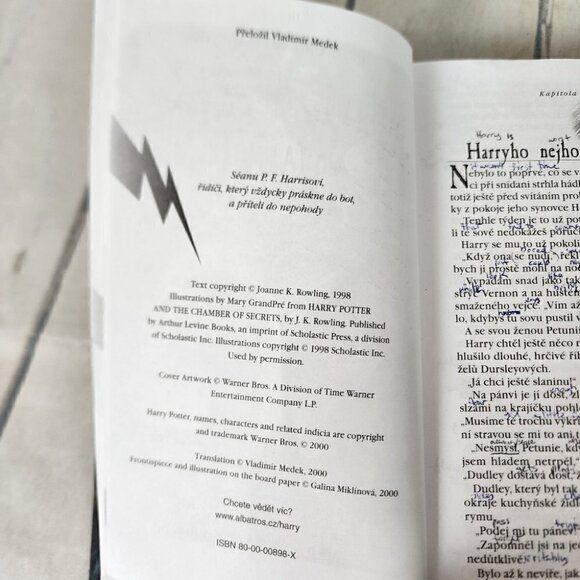 Přeložil Vladimír Medek
Séanu P. F. Harrisovi,
řidiči, který vždycky práskne do bot,
a příteli do nepohody
Text copyright © Joanne K. Rowling, 1998
Illustrations by Mary GrandPré from HARRY POTTER
AND THE CHAMBER OF SECRETS, by J. K. Rowling. Published
by Arthur Levine Books, an imprint of Scholastic Press, a division
of Scholastic Inc. Illustrations copyright © 1998 Scholastic Inc.
Used by permission.
Cover Artwork © Warner Bros. A Division of Time Warner
Entertainment Company L.P.
Harry Potter, names, characters and related indicia are copyright
and trademark Warner Bros. © 2000
Translation © Vladimír Medek, 2000
Frontispiece and illustration on the board paper © Galina Miklínová, 2000
Chcete vědět víc?
www.albatros.cz/harry
ISBN 80-00-00898-X
Kapitola
Harry is
Harryho nejho
Nebylo to poprvé, co se v
ci při snídani strhla hád
totiž ještě před svítáním prob
ky z pokoje jeho synovce H
„Tenhle týden je to už po
li té sové nedokážeš poruč
Harry se mu to už pokoli
„Když ona se nudí,“ řekl
bych ji prostě mohl na no
„Vypadám snad jako tak
strýc Vernon a na huště
smaženého vejce. „Vím až
lo, kdybys tu sovu pustil v
A se svou ženou Petuni
Harry chtěl ještě něco n
hlušilo dlouhé, hrčivé říh
želů Dursleyových.
„Já chci ještě slaninu!“
„Na pánvi je jí dost, zl
slzami na krajíčku pohl
„Musíme tě trochu vykři
ní stravou se mi to ani t
„Nesmysl, Petunie, kdy
jsem hladem netrpěl,“
„Dudley dostává dost, ž
Dudley, který byl tak
okraje kuchyňské židl
rýmu.
„Podej mi tu pánev!
„Zapomněl jsi na jed
nedůtklivě.
Bylo až k nevíře, jak